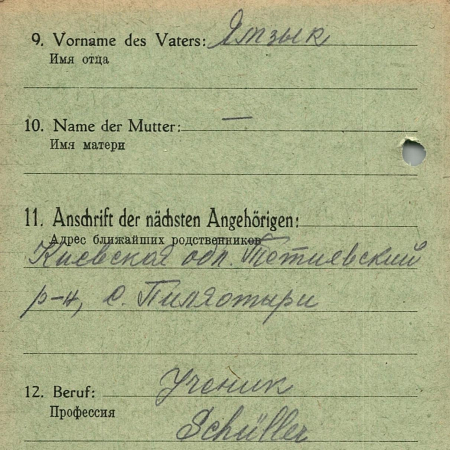 9. Vorname des Vaters: Ямзык
Имя отца
10. Name der Mutter: —
Имя матери
11. Anschrift der nächsten Angehörigen:
Адрес ближайших родственников
Киевская обл. Тетиевский
р-н, с. Пиляотыри
12. Beruf: Ученик
Профессия
Schüller